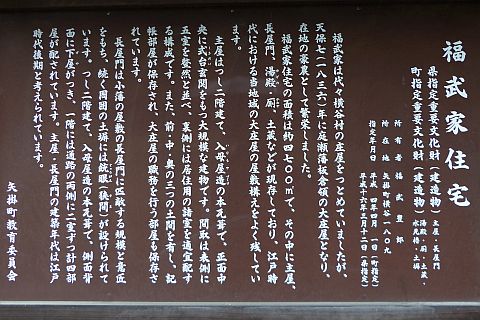 福武家住宅
県指定重要文化財(建造物) 主屋・長屋門
町指定重要文化財(建造物) 湯殿・厠・土蔵・
所有者 福武
所在地 矢掛町横谷一八〇九
指定年月日 平成四年四月一日(町指定)
平成一六年三月一二日(県指定)
福武家は代々横谷村の庄屋をつとめていましたが、
天保七(一八三六)年に庭瀬藩板倉領の大庄屋となり、
在地の豪農として繁栄しました。
福武家住宅の面積は約四七〇〇㎡で、その中に主屋、
長屋門、湯殿・厠、土蔵などが現存しており、江戸時
代における当地域の大庄屋の屋敷構えをよく残してい
ます。
主屋はつし二階建て、入母屋造の本瓦葺で、正面中
央に式台玄関をもつ大規模な建物です。間取は表側に
五室を整然と並べ、裏側には居住用の諸室を適宜配す
る構成です。また、前・中・奥の三つの土間を有し、記
帳部屋が保存され、大庄屋の職務を行う部屋も保存さ
れています。
長屋門は小藩の屋敷の長屋門に匹敵する規模と意匠
をもち、続く周囲の土塀には銃眼(狭間)が設けられて
います。つし二階建て、入母屋造の本瓦葺で、側面背
面に下屋がつき、一階には通路の両側に二室ずつ計四部
屋が配されています。主屋・長屋門の建築年代は江戸
時代後期と考えられています。
矢掛町教育委員会